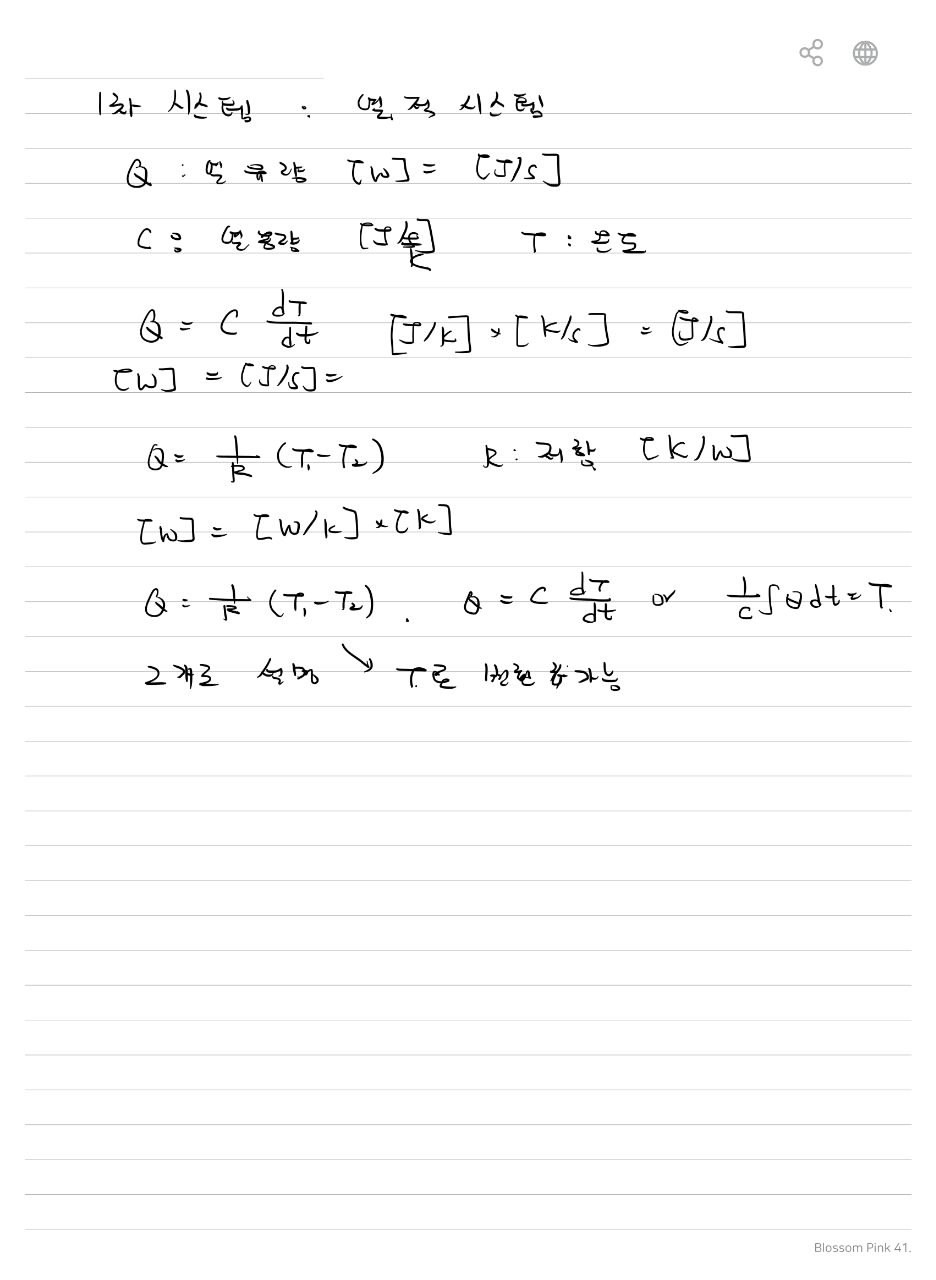 1차 시스템 : 열적 시스템
Q : 열 유량 [W] = [J/s]
C : 열용량 [J/K] T : 온도
Q = C dT/dt [J/K] × [K/s] = [J/s]
[W] = [J/s] =
Q = 1/R (T₁-T₂) R : 저항 [K/W]
[W] = [W/K] × [K]
Q = 1/R (T₁-T₂). Q = C dT/dt or 1/C ∫Q dt = T.
2개로 설명 ↘ T로 변환 가능
Blossom Pink 41.